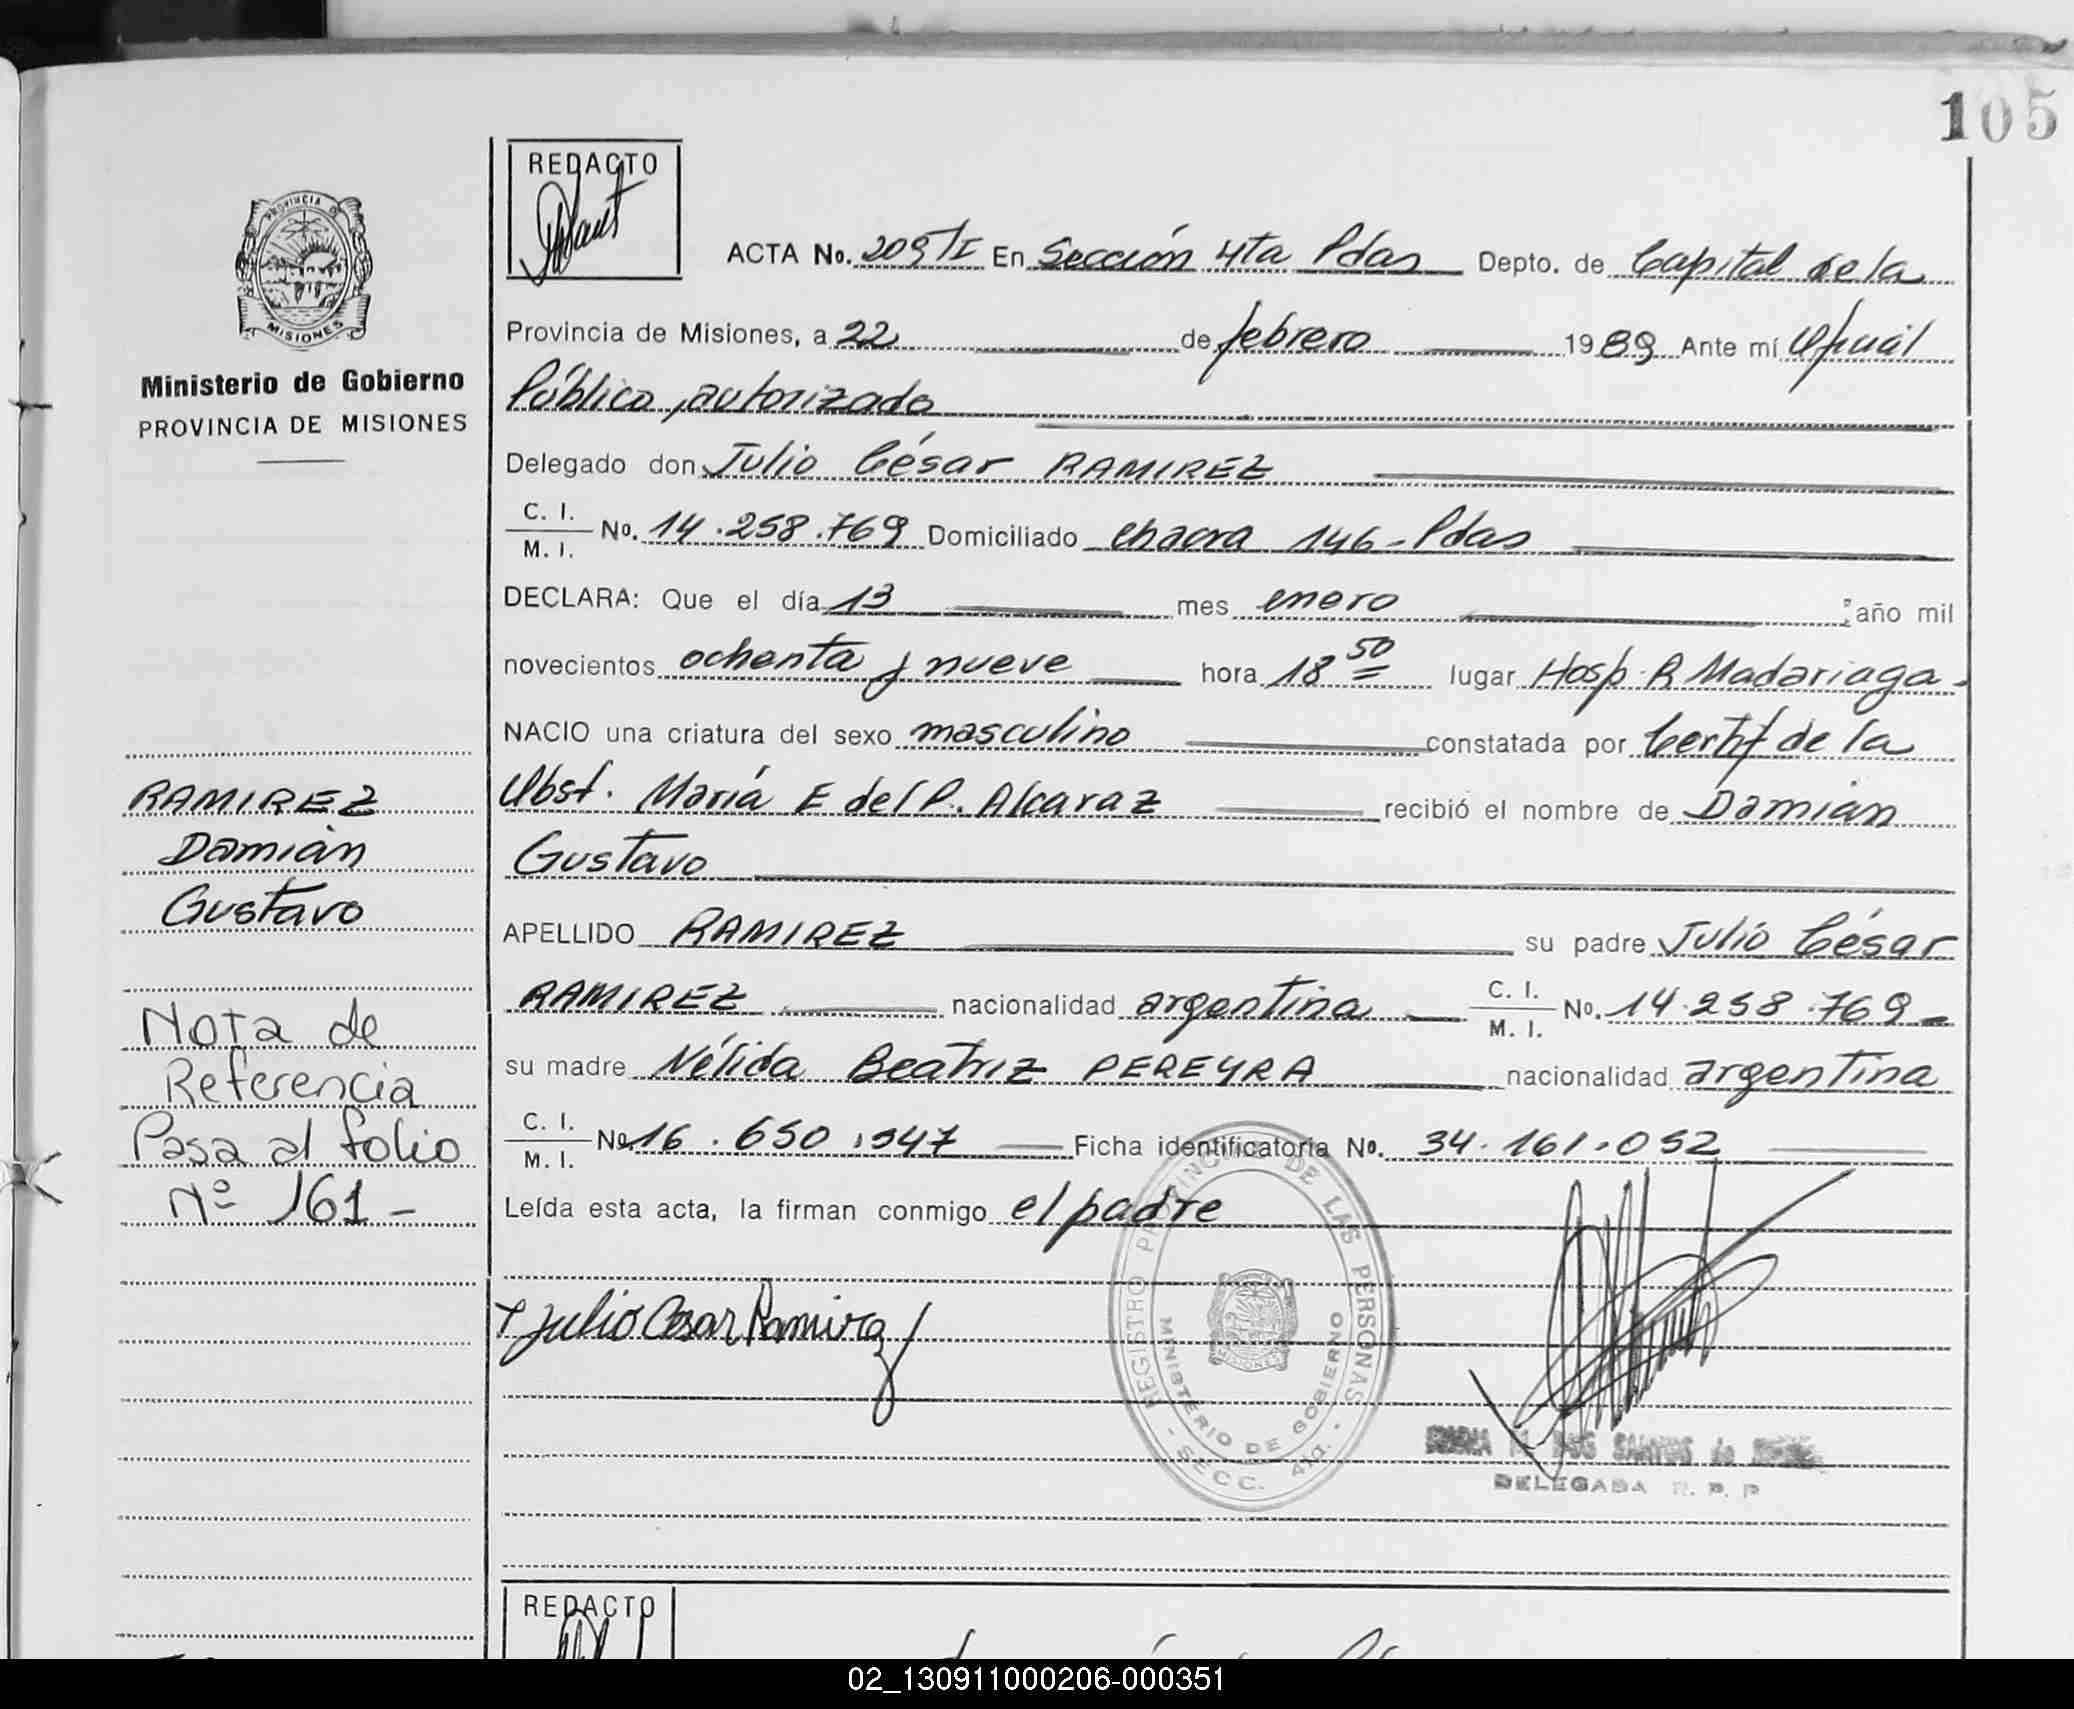 105
REDACTO
ACTA No. 209/I En Sección 4ta Pdas Depto. de Capital de la
Provincia de Misiones, a 22 de febrero 1989 Ante mí Oficial
Público, autorizado
Delegado don Julio César RAMIREZ
C. I.
M. I. No. 14.258.769 Domiciliado chacra 146 - Pdas
DECLARA: Que el día 13 mes enero año mil
novecientos ochenta y nueve hora 18 50 lugar Hosp. R Madariaga.
NACIO una criatura del sexo masculino constatada por Certif de la
Obst. María E del P. Alcaraz recibió el nombre de Damián
Gustavo
APELLIDO RAMIREZ su padre Julio César
RAMIREZ nacionalidad argentina C. I. M. I. No. 14.258.769-
su madre Nélida Beatriz PEREYRA nacionalidad argentina
C. I. M. I. No. 16.650.347 Ficha identificatoria No. 34.161.052
Leída esta acta, la firman conmigo el padre
Julio Cesar Ramirez
REGISTRO PROVINCIAL DE LAS PERSONAS
MINISTERIO DE GOBIERNO
- SECC. 4ta. -
DOS SANTOS de
DELEGADA R. P. P
PROVINCIA DE
MISIONES
Ministerio de Gobierno
PROVINCIA DE MISIONES
RAMIREZ
Damián
Gustavo
Nota de
Referencia
Pasa al folio
Nº 161 -
REDACTO
02_130911000206-000351